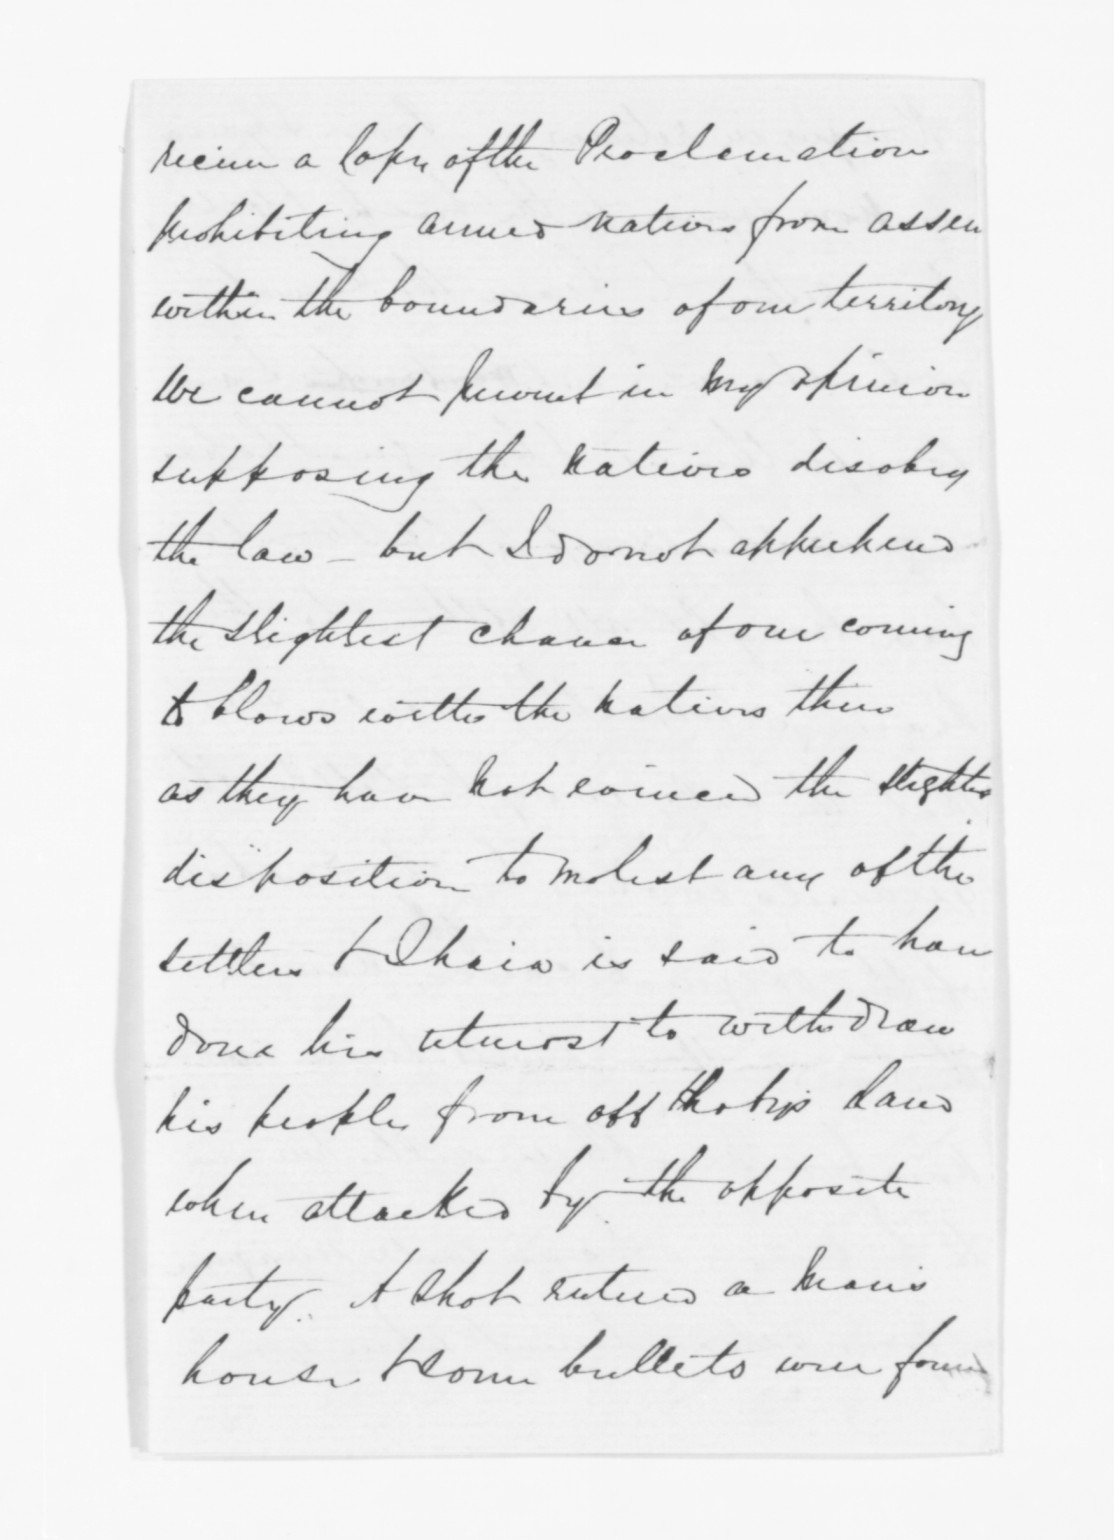 receive a Copy of the Proclamation
prohibiting armed natives from assem
within the boundaries of our territory
We cannot prevent in my opinion
supposing the natives disobey
the law – but I do not apprehend
the slightest chance of our coming
to blows with the natives there
as they have not evinced the slightest
disposition to molest any of the
settlers & Ihaia is said to have
done his utmost to withdraw
his people from off Hobbs land
when attacked by the opposite
party. A shot entered a man's
house & some bullets were found